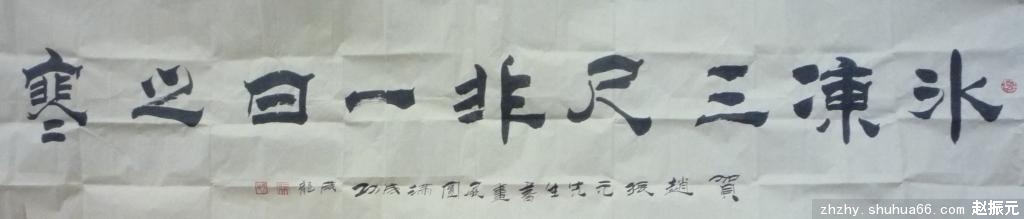 冰凍三尺非一日之寒
賀趙振元先生書畫展圓滿成功
zhzhy.shuhua66.com 赵振元